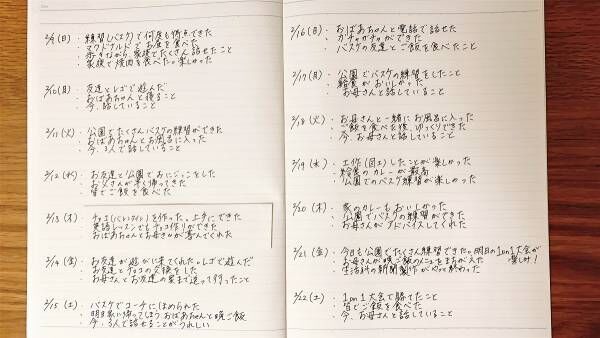 2/9(日)・練習しバスケで何度も得点できた
・マクドナルドでお昼を食べた
・歩きながら家族でたくさん話せたこと
・家族で焼肉を食べた。楽しかった
2/10(月)・友達とレゴで遊んだ
・おばあちゃんと寝ること
・今、話していること
2/11(火)・公園でたくさんバスケの練習ができた
・おばあちゃんとお風呂に入った
・今、3人で話していること
2/12(水)・お友達と公園でおにごっこをした
・お父さんが早く帰ってきた
・皆でご飯を食べた
2/13(木)・チョコ(バレンタイン)を作った。上手にできた
・英語レッスンでもチョコ作りができた
・おばあちゃんとお母さんが喜んでくれた
2/14(金)・お友達が遊びに来てくれた。レゴで遊んだ
・お友達とチョコの交換をした
・お母さんとお友達の家まで送って行ったこと
2/15(土)・バスケでコーチにほめられた
・明日家に帰ってしまうおばあちゃんと晩ご飯
・今、3人で話せることがうれしい
2/16(日)・おばあちゃんと電話で話せた
・ガチャガチャができた
・バスケの友達とご飯を食べたこと
2/17(月)・公園でバスケの練習をしたこと
・給食がおいしかった
・お母さんと話していること
2/18(火)・お母さんと一緒にお風呂に入った
・ご飯を食べた後、ゆっくりできた
・今、お母さんと話していること
2/19(水)・工作(図工)したことが楽しかった
・給食のカレーが最高
・公園でのバスケ練習が楽しかった
2/20(木)・家のカレーもおいしかった
・公園でバスケの練習ができた
・お母さんがアドバイスしてくれた
2/21(金)・今日も公園でたくさん練習できた。明日の1on1大会が楽しみ!
・お母さんが晩ご飯のメニューをまちがえた
・生活科の新聞製作がやっと終わった
2/22(土)・1on1大会で勝てたこと
・皆でご飯を食べた
・今、お母さんと話していること